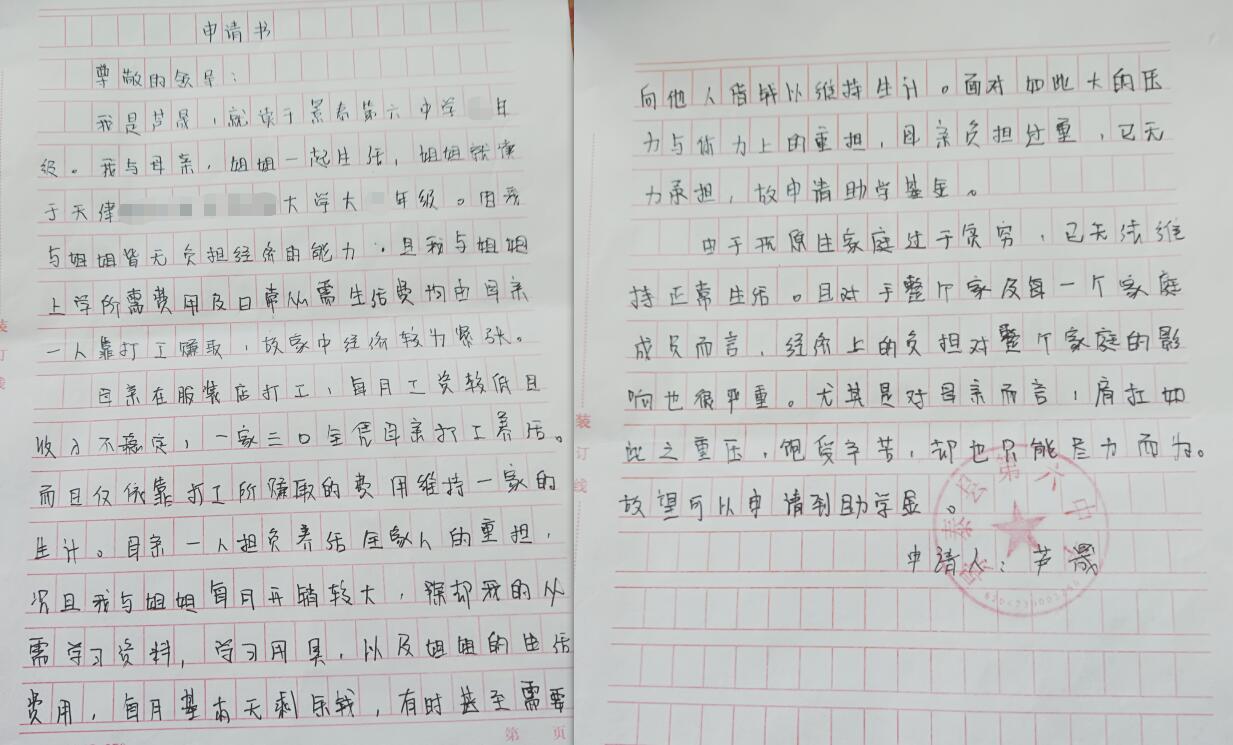 申请书
尊敬的领导：
我是芦晟，就读于景泰第六中学 年
级。我与母亲，姐姐一起生活，姐姐就读
于天津 大学大 年级。因我
与姐姐皆无负担经济的能力，且我与姐姐
上学所需费用及日常必需生活费均由母亲
一人靠打工赚取，故家中经济较为紧张。
母亲在服装店打工，每月工资较低且
收入不稳定，一家三口全凭母亲打工养活。
而且仅依靠打工所赚取的费用维持一家的
生计。母亲一人担负养活全家人的重担，
况且我与姐姐每月开销较大，除却我的必
需学习资料，学习用具，以及姐姐的生活
费用，每月基本无剩余钱，有时甚至需要
第 页
向他人借钱以维持生计。面对如此大的压
力与体力上的重担，母亲负担过重，已无
力承担，故申请助学基金。
由于我原生家庭过于贫穷，已无法维
持正常生活。且对于整个家及每一个家庭
成员而言，经济上的负担对整个家庭的影
响也很严重。尤其是对母亲而言，肩扛如
此之重压，饱受辛苦，却也只能尽力而为。
故望可以申请到助学金。
申请人：芦晟
装订线